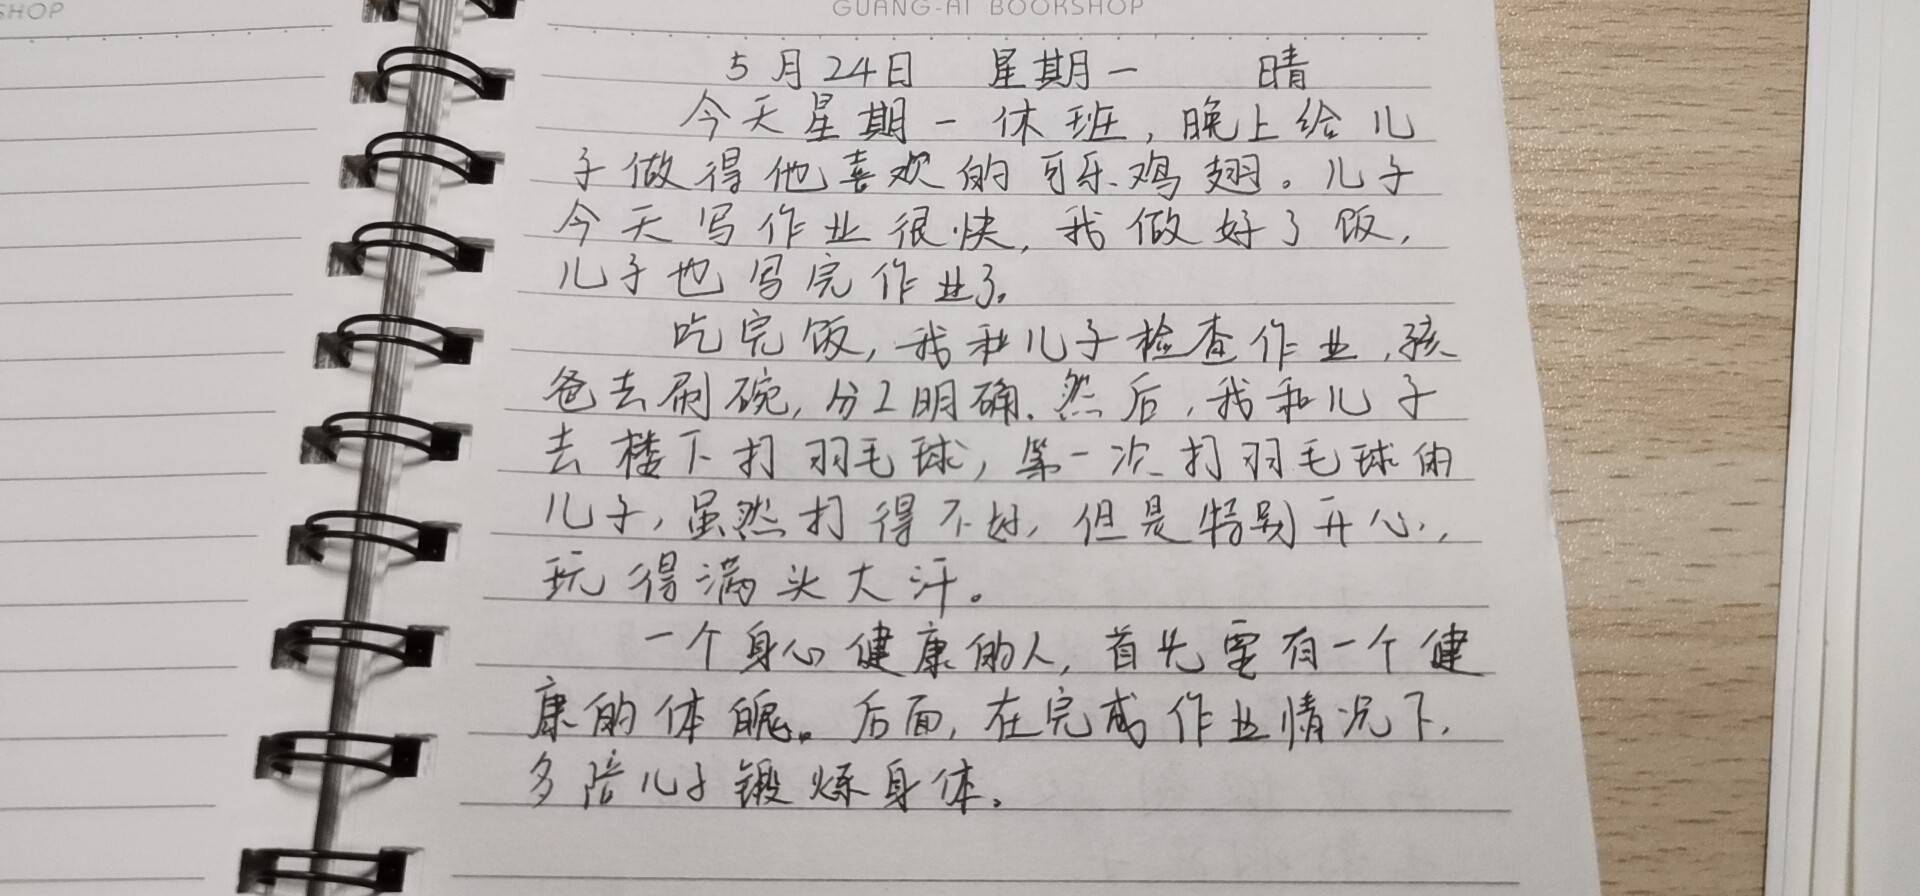 SHOP
GUANG-AI BOOKSHOP
5月24日 星期一 晴
今天星期一休班,晚上给儿
子做得他喜欢的可乐鸡翅。儿子
今天写作业很快,我做好了饭,
儿子也写完作业了。
吃完饭,我和儿子检查作业,孩
爸去刷碗,分工明确.然后,我和儿子
去楼下打羽毛球,第一次打羽毛球的
儿子,虽然打得不好,但是特别开心,
玩得满头大汗。
一个身心健康的人,首先要有一个健
康的体魄。后面,在完成作业情况下,
多陪儿子锻炼身体。